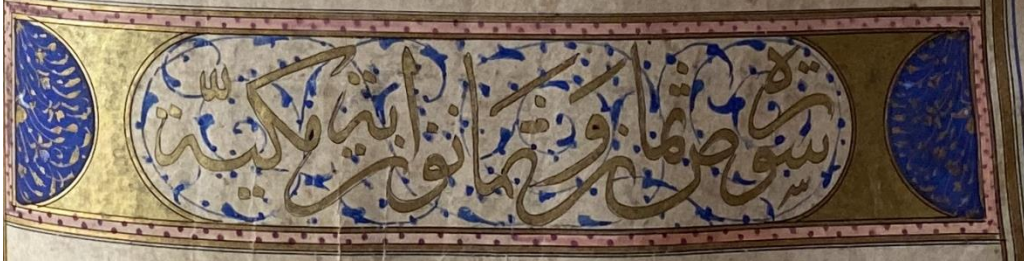 سورة ص ثمان وثمانون اية مكيّة